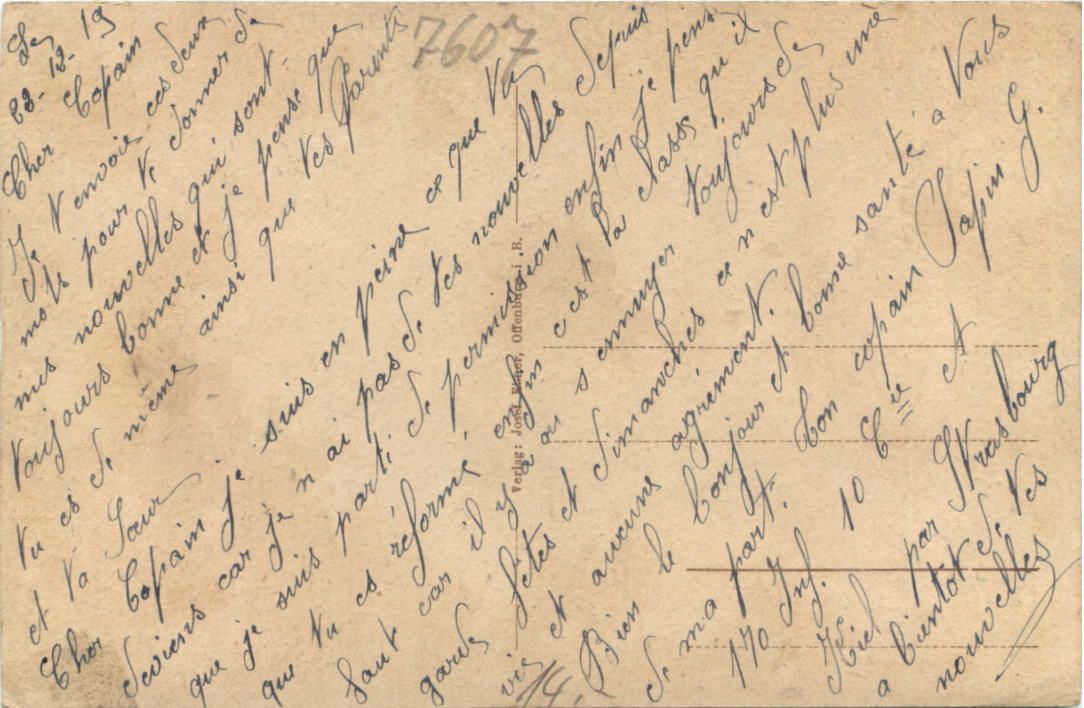 7607
Le
28-12-19
Cher Copain
Je t envoie ces deux
mots pour te donner de
mes nouvelles qui sont
toujours bonne et je pense que
tu es de même ainsi que tes Parents
et ta Sœur
Cher Copain je suis en peine ce que tu
deviens car je n ai pas de tes nouvelles depuis
que je suis parti de permission enfin je pense
que tu es réformé, enfin c est la classe qu il
faut car il y a à s ennuyer toujours de
garde fêtes et dimanches ce n est plus une
vie et aucune agrément.
Bien le bonjour et bonne santé a vous
de ma part. ton copain Papin G.
170 Inf. 10 Cie et
Kiel par Strasbourg
a bientôt de tes
nouvelles
14.
Verlag: Josef Offenburg i. B.